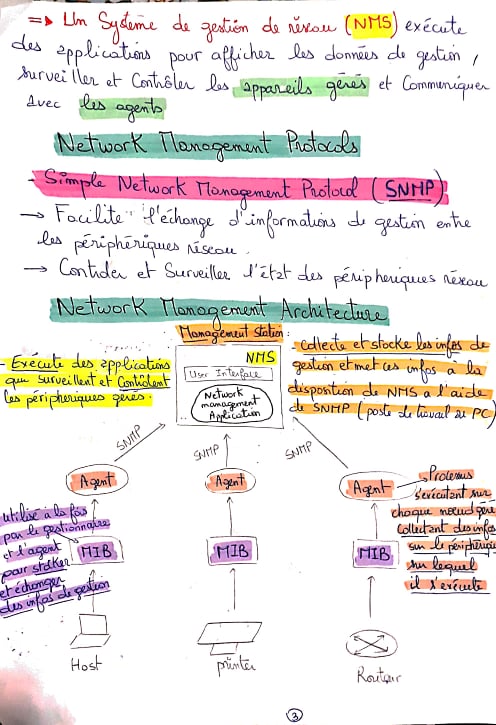 => Un Système de gestion de réseau (NMS) exécute
des applications pour afficher les données de gestion,
surveiller et Contrôler les appareils gérés et Communiquer
avec les agents
Network Management Protocols
- Simple Network Management Protocol (SNMP)
→ Facilite l'échange d'informations de gestion entre
les périphériques réseau.
→ Contrôler et Surveiller l'état des périphériques réseau
Network Management Architecture
Management station:
- Exécute des applications
qui surveillent et Contrôlent
les péripheriques gérés.
NMS
User Interface
Network
management
Application
collecte et stocke les infos de
gestion et met ces infos a la
dispotion de NMS a l'aide
de SNMP (poste de travail ou PC)
SNMP
SNMP
SNMP
Agent
Agent
Agent
Processus
s'exécutant sur
chaque noeud géré
Collectant des infos
sur le périphérique
sur lequel
il s'exécute
utilisé a la fois
par le gestionnaire
et l'agent
pour stocker
et échanger
des infos de gestion
MIB
MIB
MIB
Host
printer
Routeur
3